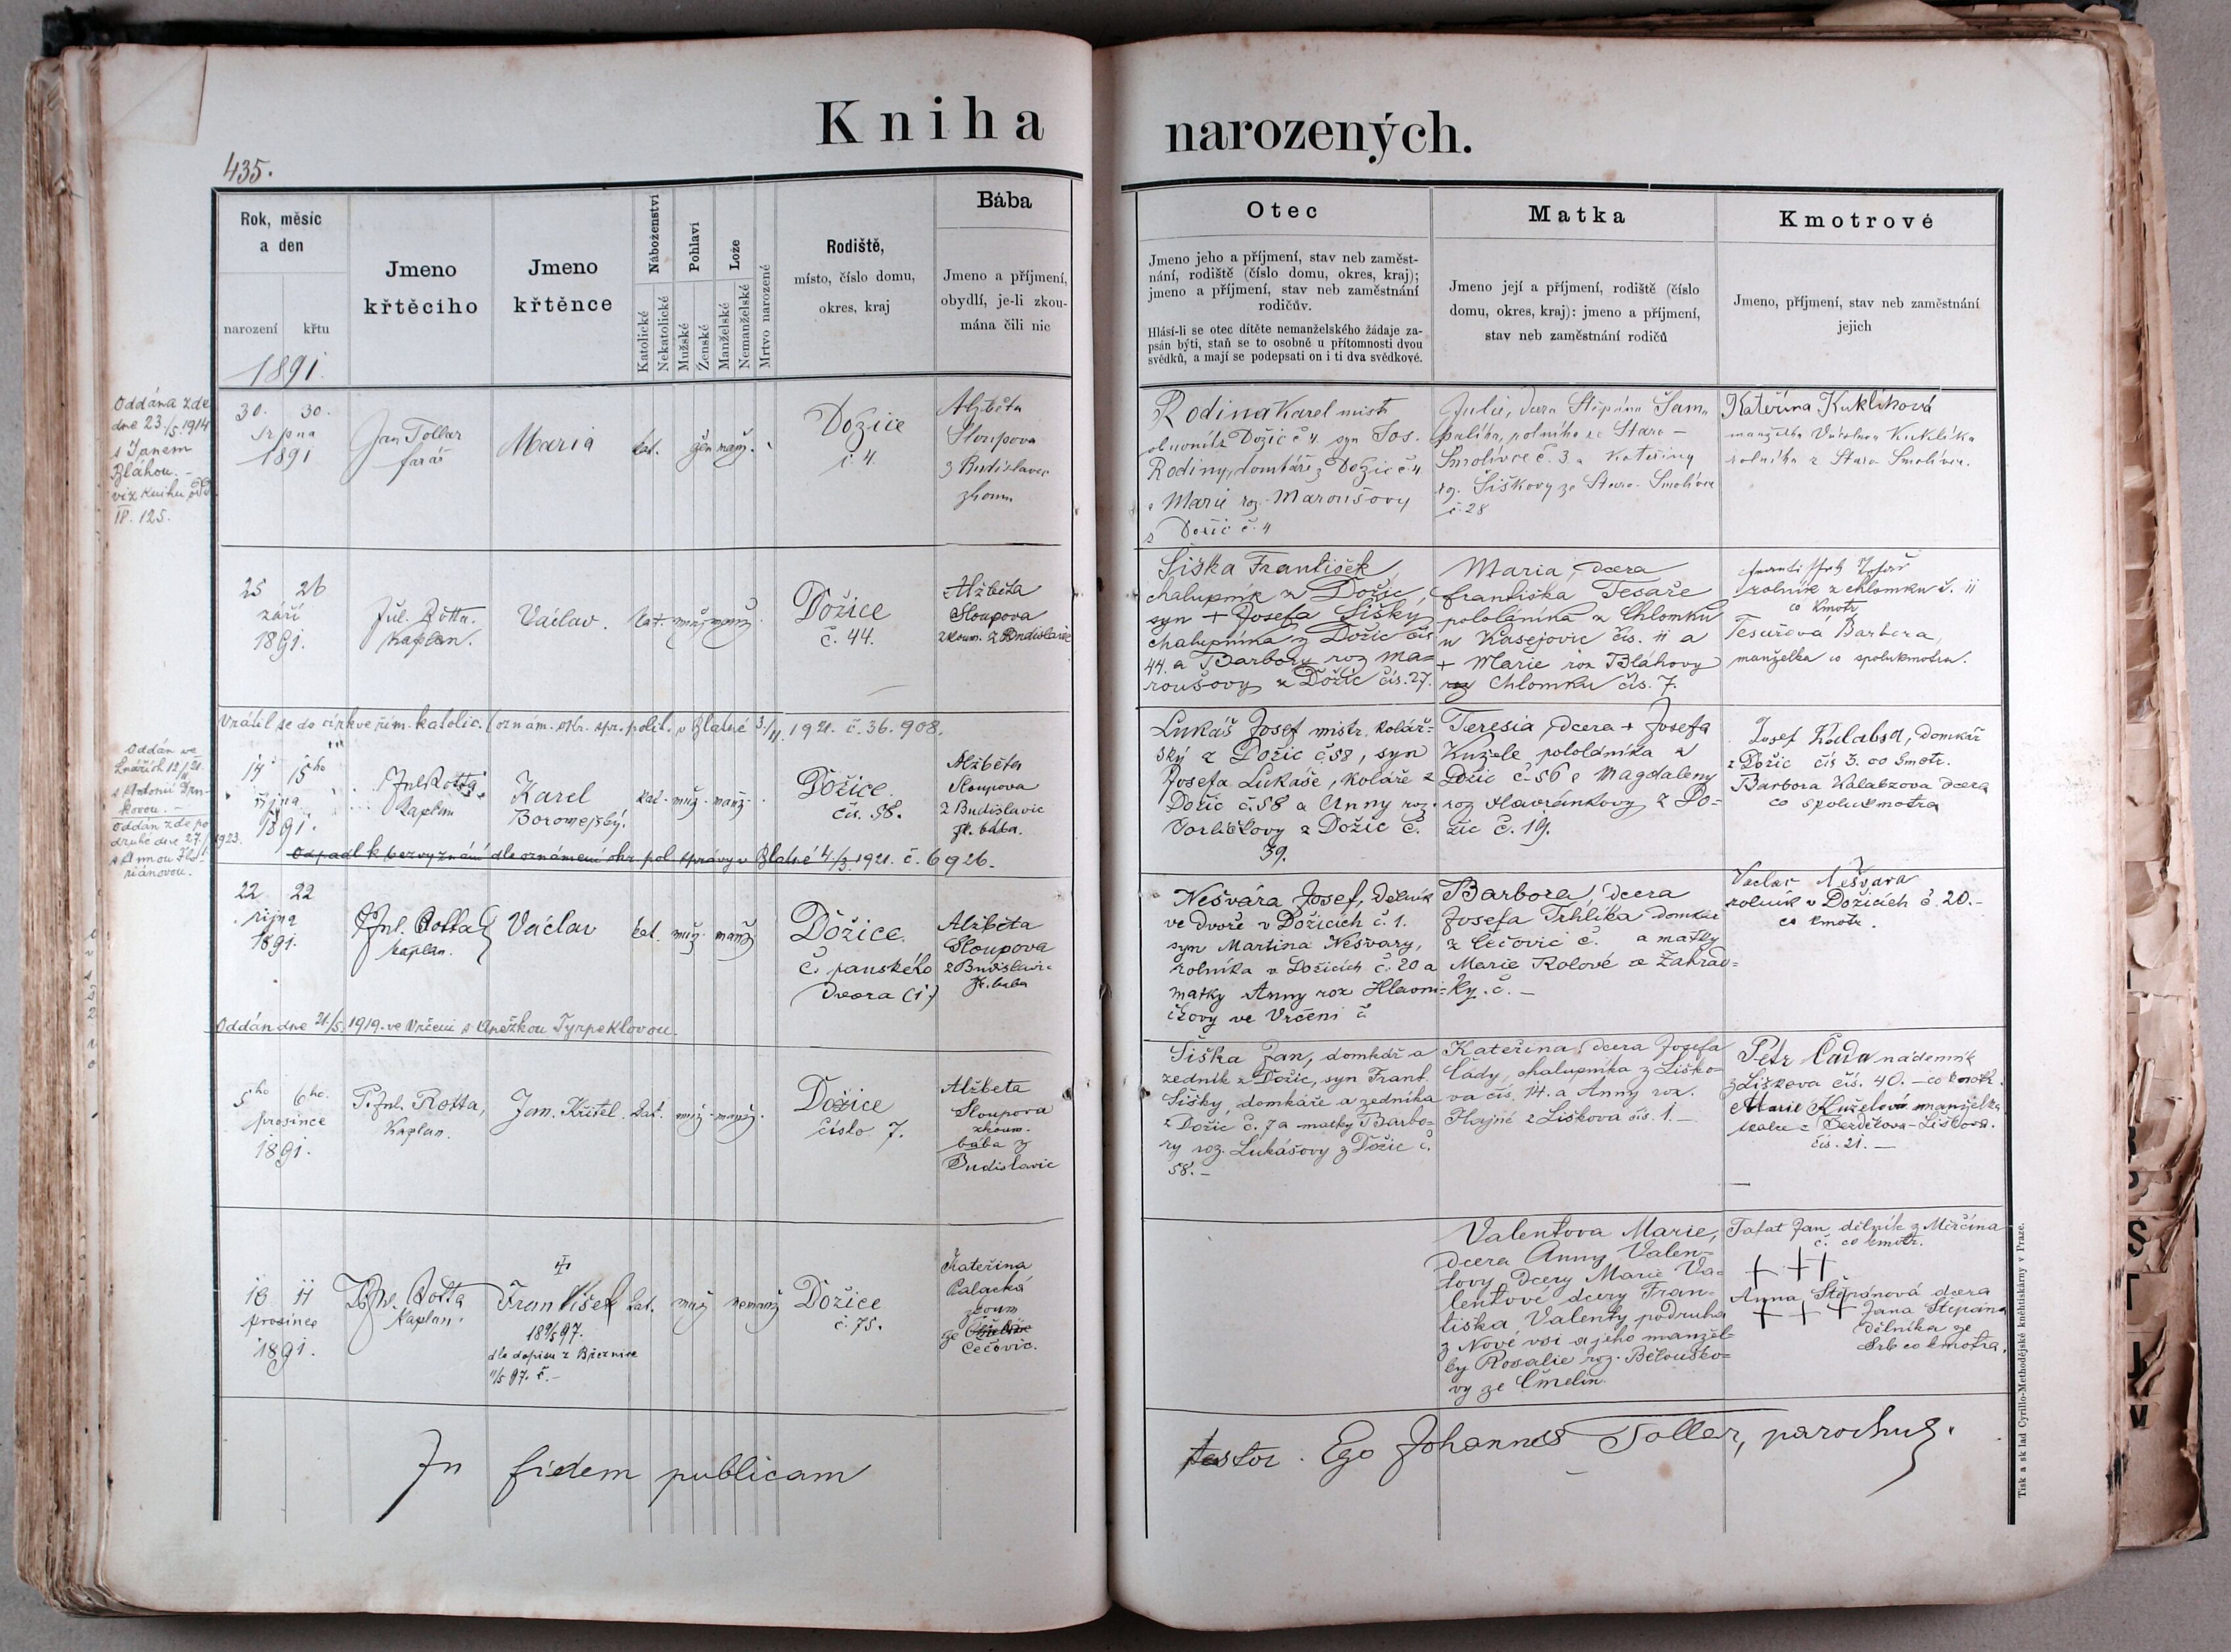 Kniha narozených.
435.
Rok, měsíc
a den
narození křtu
1891.
Jmeno
křtěcího
Jmeno
křtěnce
Náboženství
Katolické
Nekatolické
Pohlaví
Mužské
Ženské
Lože
Manželské
Nemanželské
Mrtvo narozené
Rodiště,
místo, číslo domu,
okres, kraj
Bába
Jmeno a příjmení,
obydlí, je-li zkou-
mána čili nic
Otec
Jmeno jeho a příjmení, stav neb zaměst-
nání, rodiště (číslo domu, okres, kraj);
jmeno a příjmení, stav neb zaměstnání
rodičův.
Hlásí-li se otec dítěte nemanželského žádaje za-
psán býti, staň se to osobně u přítomnosti dvou
svědků, a mají se podepsati on i ti dva svědkové.
Matka
Jmeno její a příjmení, rodiště (číslo
domu, okres, kraj): jmeno a příjmení,
stav neb zaměstnání rodičů
Kmotrové
Jmeno, příjmení, stav neb zaměstnání
jejich
Oddána zde
dne 23./5. 1914
s Janem
Bláhou. -
viz knihu odd.
IV. 125.
30. 30.
srpna
1891
Jan Toller
farář
Maria
kat. žen manž.
Dožice
č. 4.
Alžběta
Sloupova
z Budislavic
zkoum
Rodina Karel mistr
obuvník Dožic č 4. syn Jos.
Rodiny, domkáře z Dožic č. 4
a Marie roz. Maroušovy
z Dožic č. 4
Julie, dcera Štěpána Šam-
palíka, rolníka ze Staro-
Smolivce č. 3 a Kateřiny
roz. Šiškovy ze Staro-Smolivce
č. 28
Kateřina Kuklíková
manželka Václava Kuklíka
rolníka z Staro Smolivce.
25 26
září
1891.
Jul. Rotta.
Kaplan.
Václav.
kat. muž manž.
Dožice
č. 44.
Alžběta
Sloupova
zkoum. z Budislavic
Šiška František,
chalupník z Dožic,
syn + Josefa Šišky,
chalupníka z Dožic čís
44. a Barbory roz Ma-
roušovy z Dožic čís. 27.
Maria, dcera
Františka Tesaře
pololáníka z Chlomku
u Kasejovic čís. 11 a
+ Marie roz Bláhovy
z Chlomku čís. 7.
František Tesař
rolník z Chlomku č. 11
co kmotr
Tesařová Barbora,
manželka co spolukmotra.
Vrátil se do církve řím. katolic. (oznám. okr. spr. polit. v Blatné 3/11. 1921. č. 36.908.
Oddán ve
Lnářích 12/11 21.
s Antonií Drn-
kovou. -
Oddán zde po
druhé dne 27./ 1923.
s Annou Flo-
riánovou.
14 15ho
října
1891.
Jul Rotta
Kaplan
Karel
Boromejský.
kat. muž. manž.
Dožice.
čís. 58.
Alžběta
Sloupova
z Budislavic
zk. bába.
Lukáš Josef mistr kolář-
ský z Dožic č. 58, syn
Josefa Lukaše, koláře z
Dožic č. 58 a Anny roz.
Vorlíčkovy z Dožic č.
39.
Teresia, dcera + Josefa
Kužele pololáníka z
Dožic č 56 a Magdaleny
roz Havránkovy z Do-
žic č. 19.
Josef Kalabza, domkář
z Dožic čís 3. co kmotr.
Barbora Kalabzova dcera
co spolukmotra
Odpadl k bezvyznání dle oznámení okr. pol. správy v Blatné 4/3. 1921. č. 6926.
22 22
října
1891.
Jul. Rotta
Kaplan.
Václav
kat. muž. manž
Dožice.
č. panského
dvora (1.)
Alžběta
Sloupova
z Budislavic
zk. bába
Nešvára Josef, dělník
ve dvoře v Dožicích č. 1.
syn Martina Nešváry,
rolníka v Dožicích č. 20 a
matky Anny roz Hlavni-
čkovy ve Vrčeni č
Barbora, dcera
Josefa Trhlíka domkář
z Čečovic č. a matky
Marie Rolové ze Zahrád-
ky. č. —
Václav Nešvara
rolník v Dožicích č. 20.-
co kmotr.
Oddán dne 21./5. 1919. ve Vrčeni s Anežkou Tyrpeklovou.
5ho 6ho.
prosince
1891.
P. Jul. Rotta,
Kaplan.
Jan. Křtitel.
kat. muž. manž.
Dožice
číslo 7.
Alžběta
Sloupova
zkoum.
bába z
Budislavic
Šiška Jan, domkář a
zedník z Dožic, syn Frant.
Šišky, domkáře a zedníka
z Dožic č. 7 a matky Barbo-
ry roz. Lukášovy z Dožic č.
58. -
Kateřina dcera Josefa
Čády, chalupníka z Liško-
va čís. 14. a Anny roz.
Hajné z Liškova čís. 1. -
Petr Čada nádeník
z Liškova čís. 40. - co kmotr.
Marie Kuželová manželka
čís. 21. —
10 11
prosince
1891.
P. Jul. Rotta
Kaplan.
František
18 9/5 97.
dle dopisu z Březnice
11/5 97. č. -
kat. muž nemanž
Dožice
č. 75.
Kateřina
Palacká
zkoum
ze
Čečovic.
Valentova Marie,
dcera Anny Valen-
tovy dcery Marie Va-
lentové dcery Fran-
tiška Valenty podruha
z Nové vsi a jeho manžel-
ky Rosalie roz. Bělouško-
vy ze Čmelin
Tafat Jan dělník z Měrčína
č. co kmotr.
+ + +
Anna Štěpánová dcera
+ + + Jana Štěpána
dělníka ze
Srb co kmotra.
In fidem publicam testor. Ego Johannes Toller, parochus.
Tisk a sklad Cyrillo-Methodějské knihtiskárny v Praze.